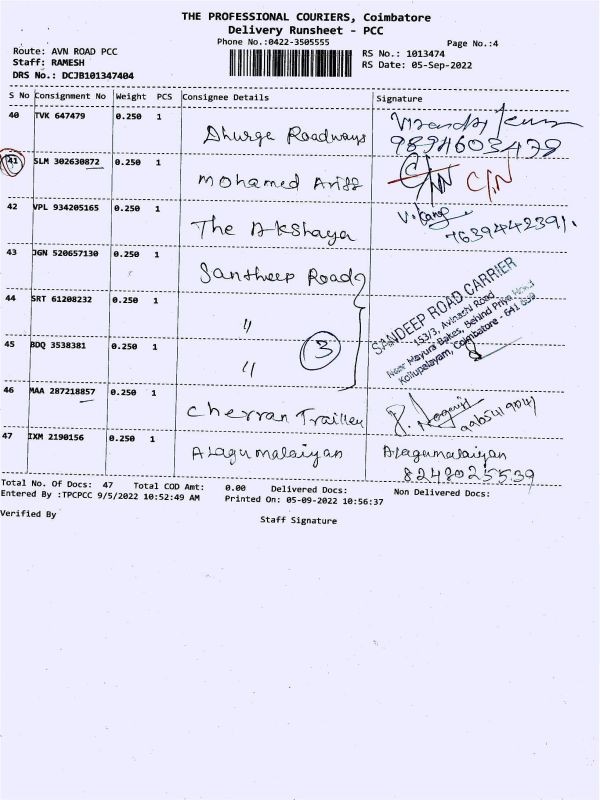 THE PROFESSIONAL COURIERS, Coimbatore
Delivery Runsheet - PCC
Phone No.:0422-3505555
Page No.:4
Route: AVN ROAD PCC
RS No.: 1013474
Staff: RAMESH
RS Date: 05-Sep-2022
DRS No.: DCJB101347404
S No Consignment No Weight PCS Consignee Details Signature
40 TVK 647479 0.250 1 Dhurga Roadways
9894603479
41 SLM 302630872 0.250 1 Mohamed Ariff C/N C/N
42 VPL 934205165 0.250 1 The Akshaya V. Kanga
7639442391.
43 JGN 520657130 0.250 1 Santheep Road
44 SRT 61208232 0.250 1 "
45 BDQ 3538381 0.250 1 "
3
SANDEEP ROAD CARRIER
153/3, Avinashi Road
Near Mayura Bakes, Behind Priya Hotel
Kollupalayam, Coimbatore - 641
46 MAA 287218857 0.250 1 Cherran Trailler
9965419041
47 IXM 2190156 0.250 1 Alagumalaiyan Alagumalaiyan
8248025539
Total No. Of Docs: 47 Total COD Amt: 0.00 Delivered Docs: Non Delivered Docs:
Entered By :TPCPCC 9/5/2022 10:52:49 AM Printed On: 05-09-2022 10:56:37
Verified By
Staff Signature